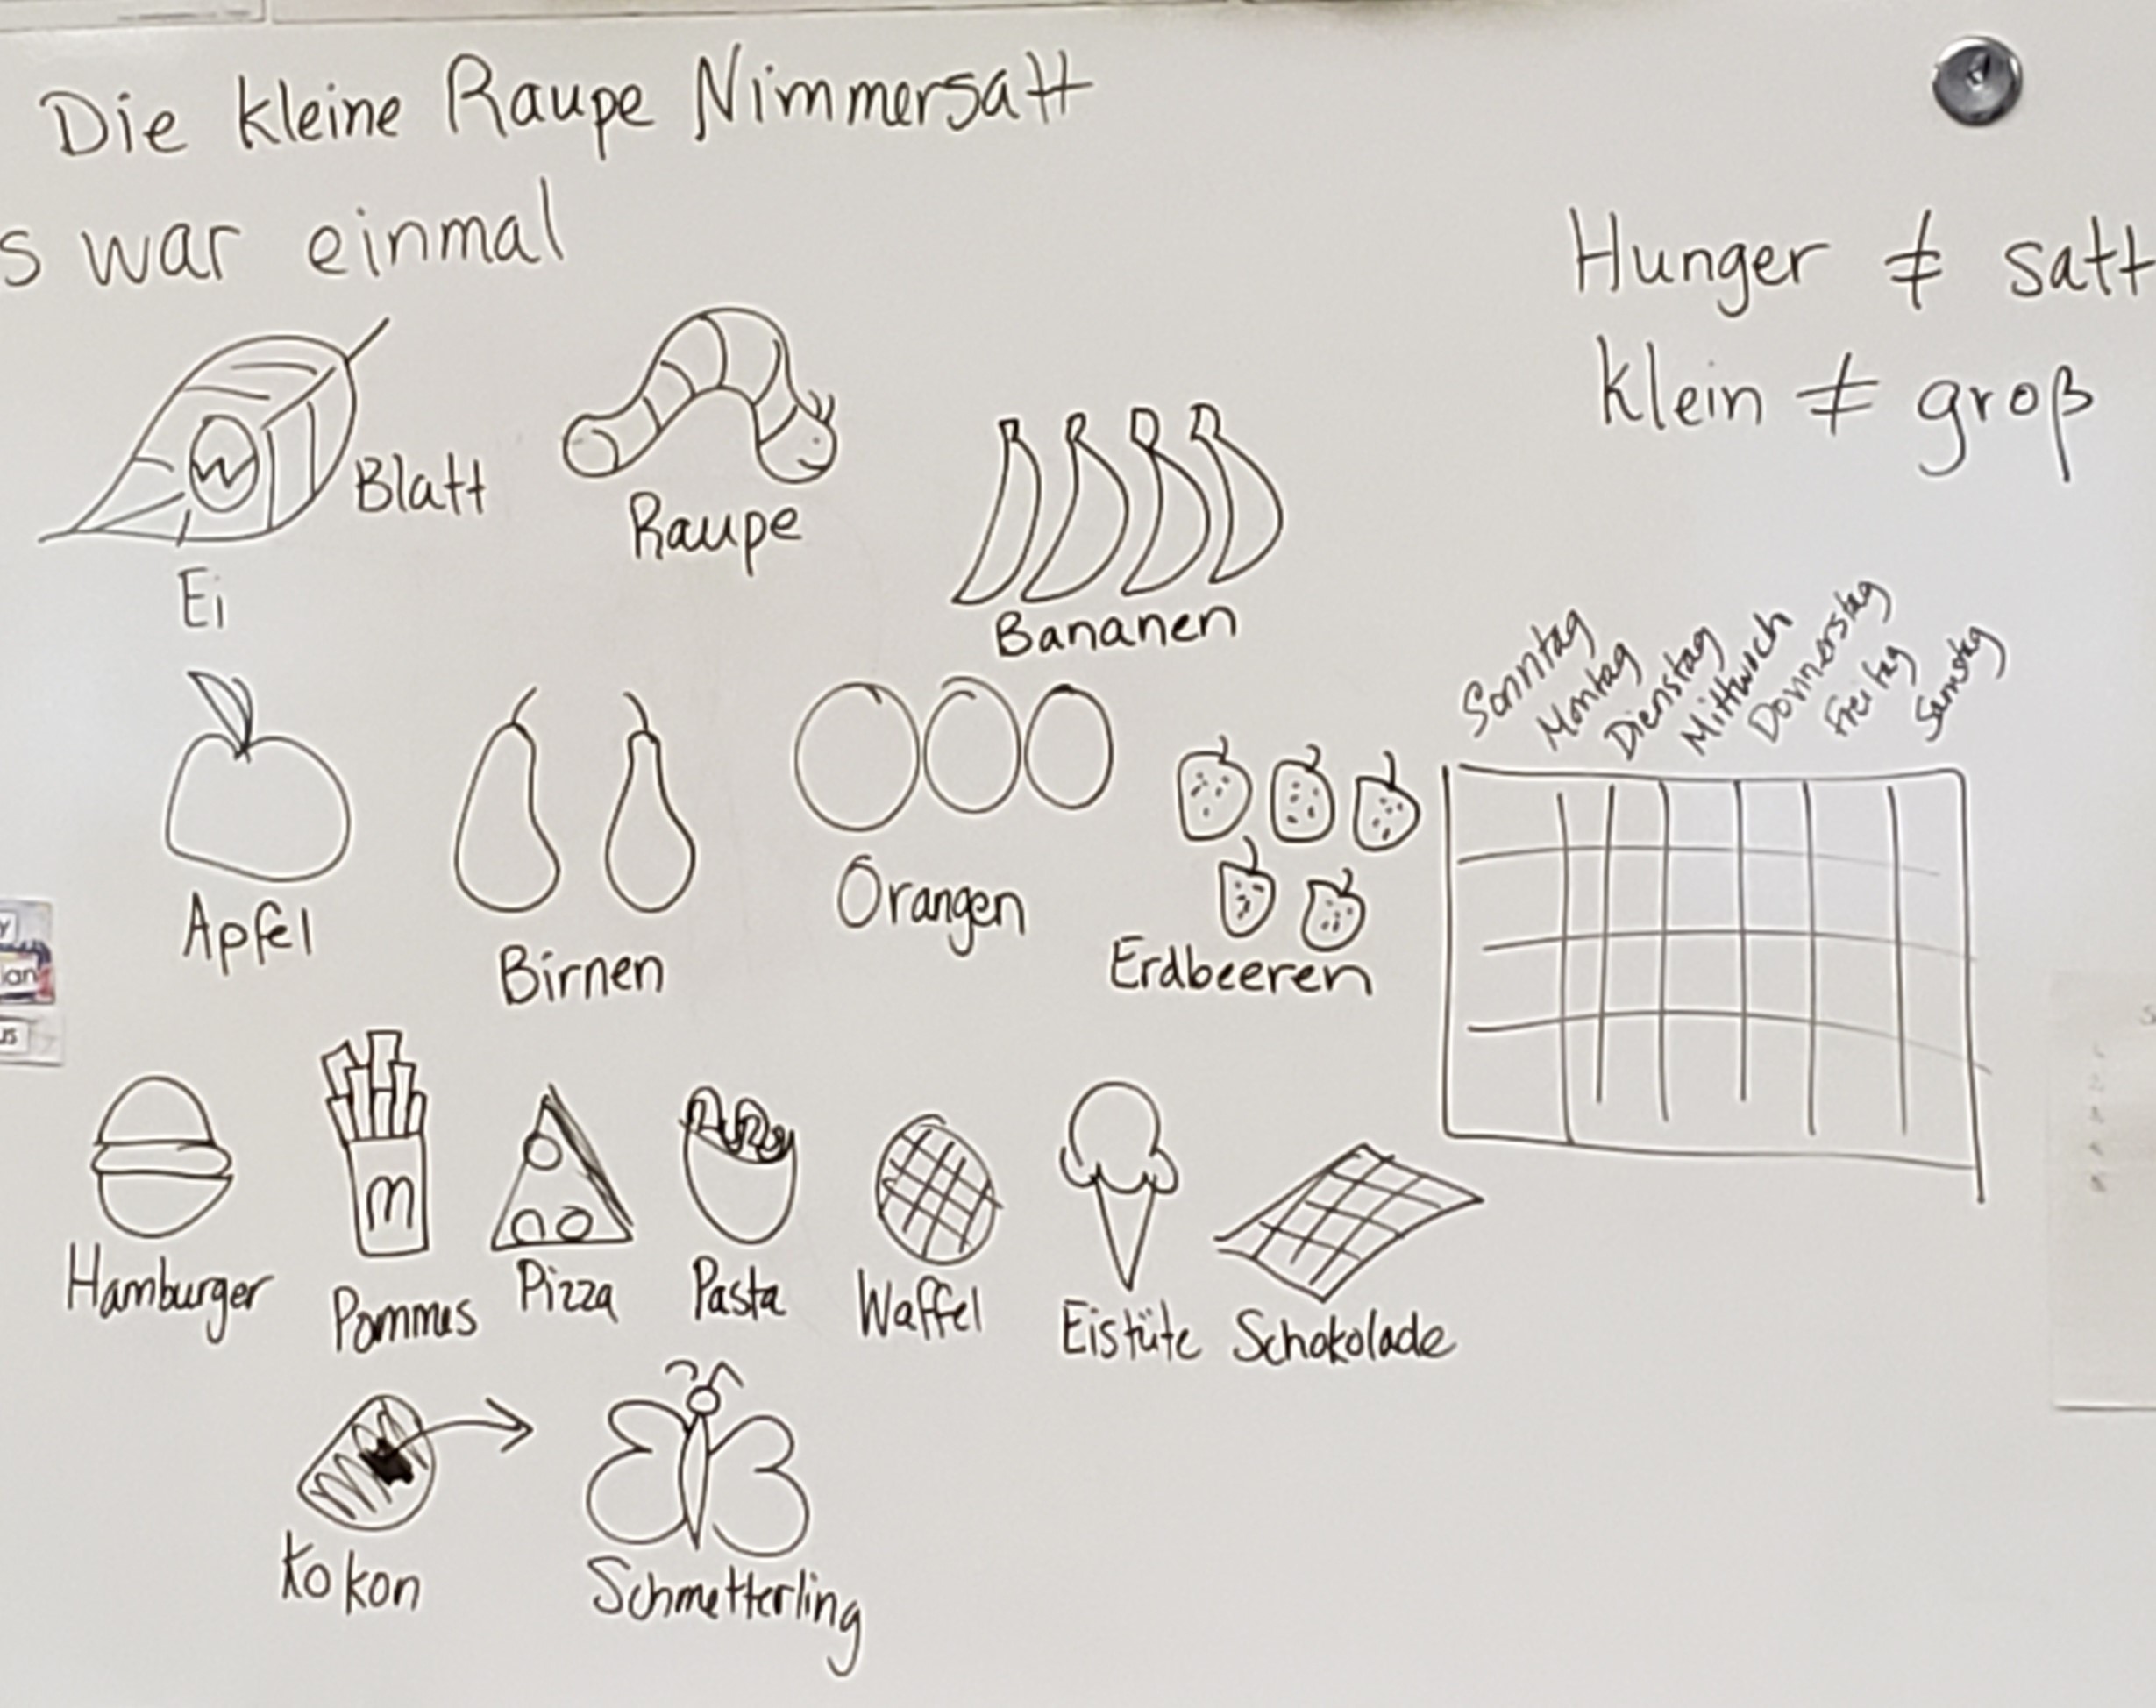 Die kleine Raupe Nimmersatt
s war einmal
Hunger ≠ satt
klein ≠ groß
Blatt
Raupe
Ei
Bananen
Sonntag
Montag
Dienstag
Mittwoch
Donnerstag
Freitag
Samstag
Apfel
Birnen
Orangen
Erdbeeren
y
ian
us
Hamburger
Pommes
M
Pizza
Pasta
Waffel
Eistüte
Schokolade
Kokon
Schmetterling